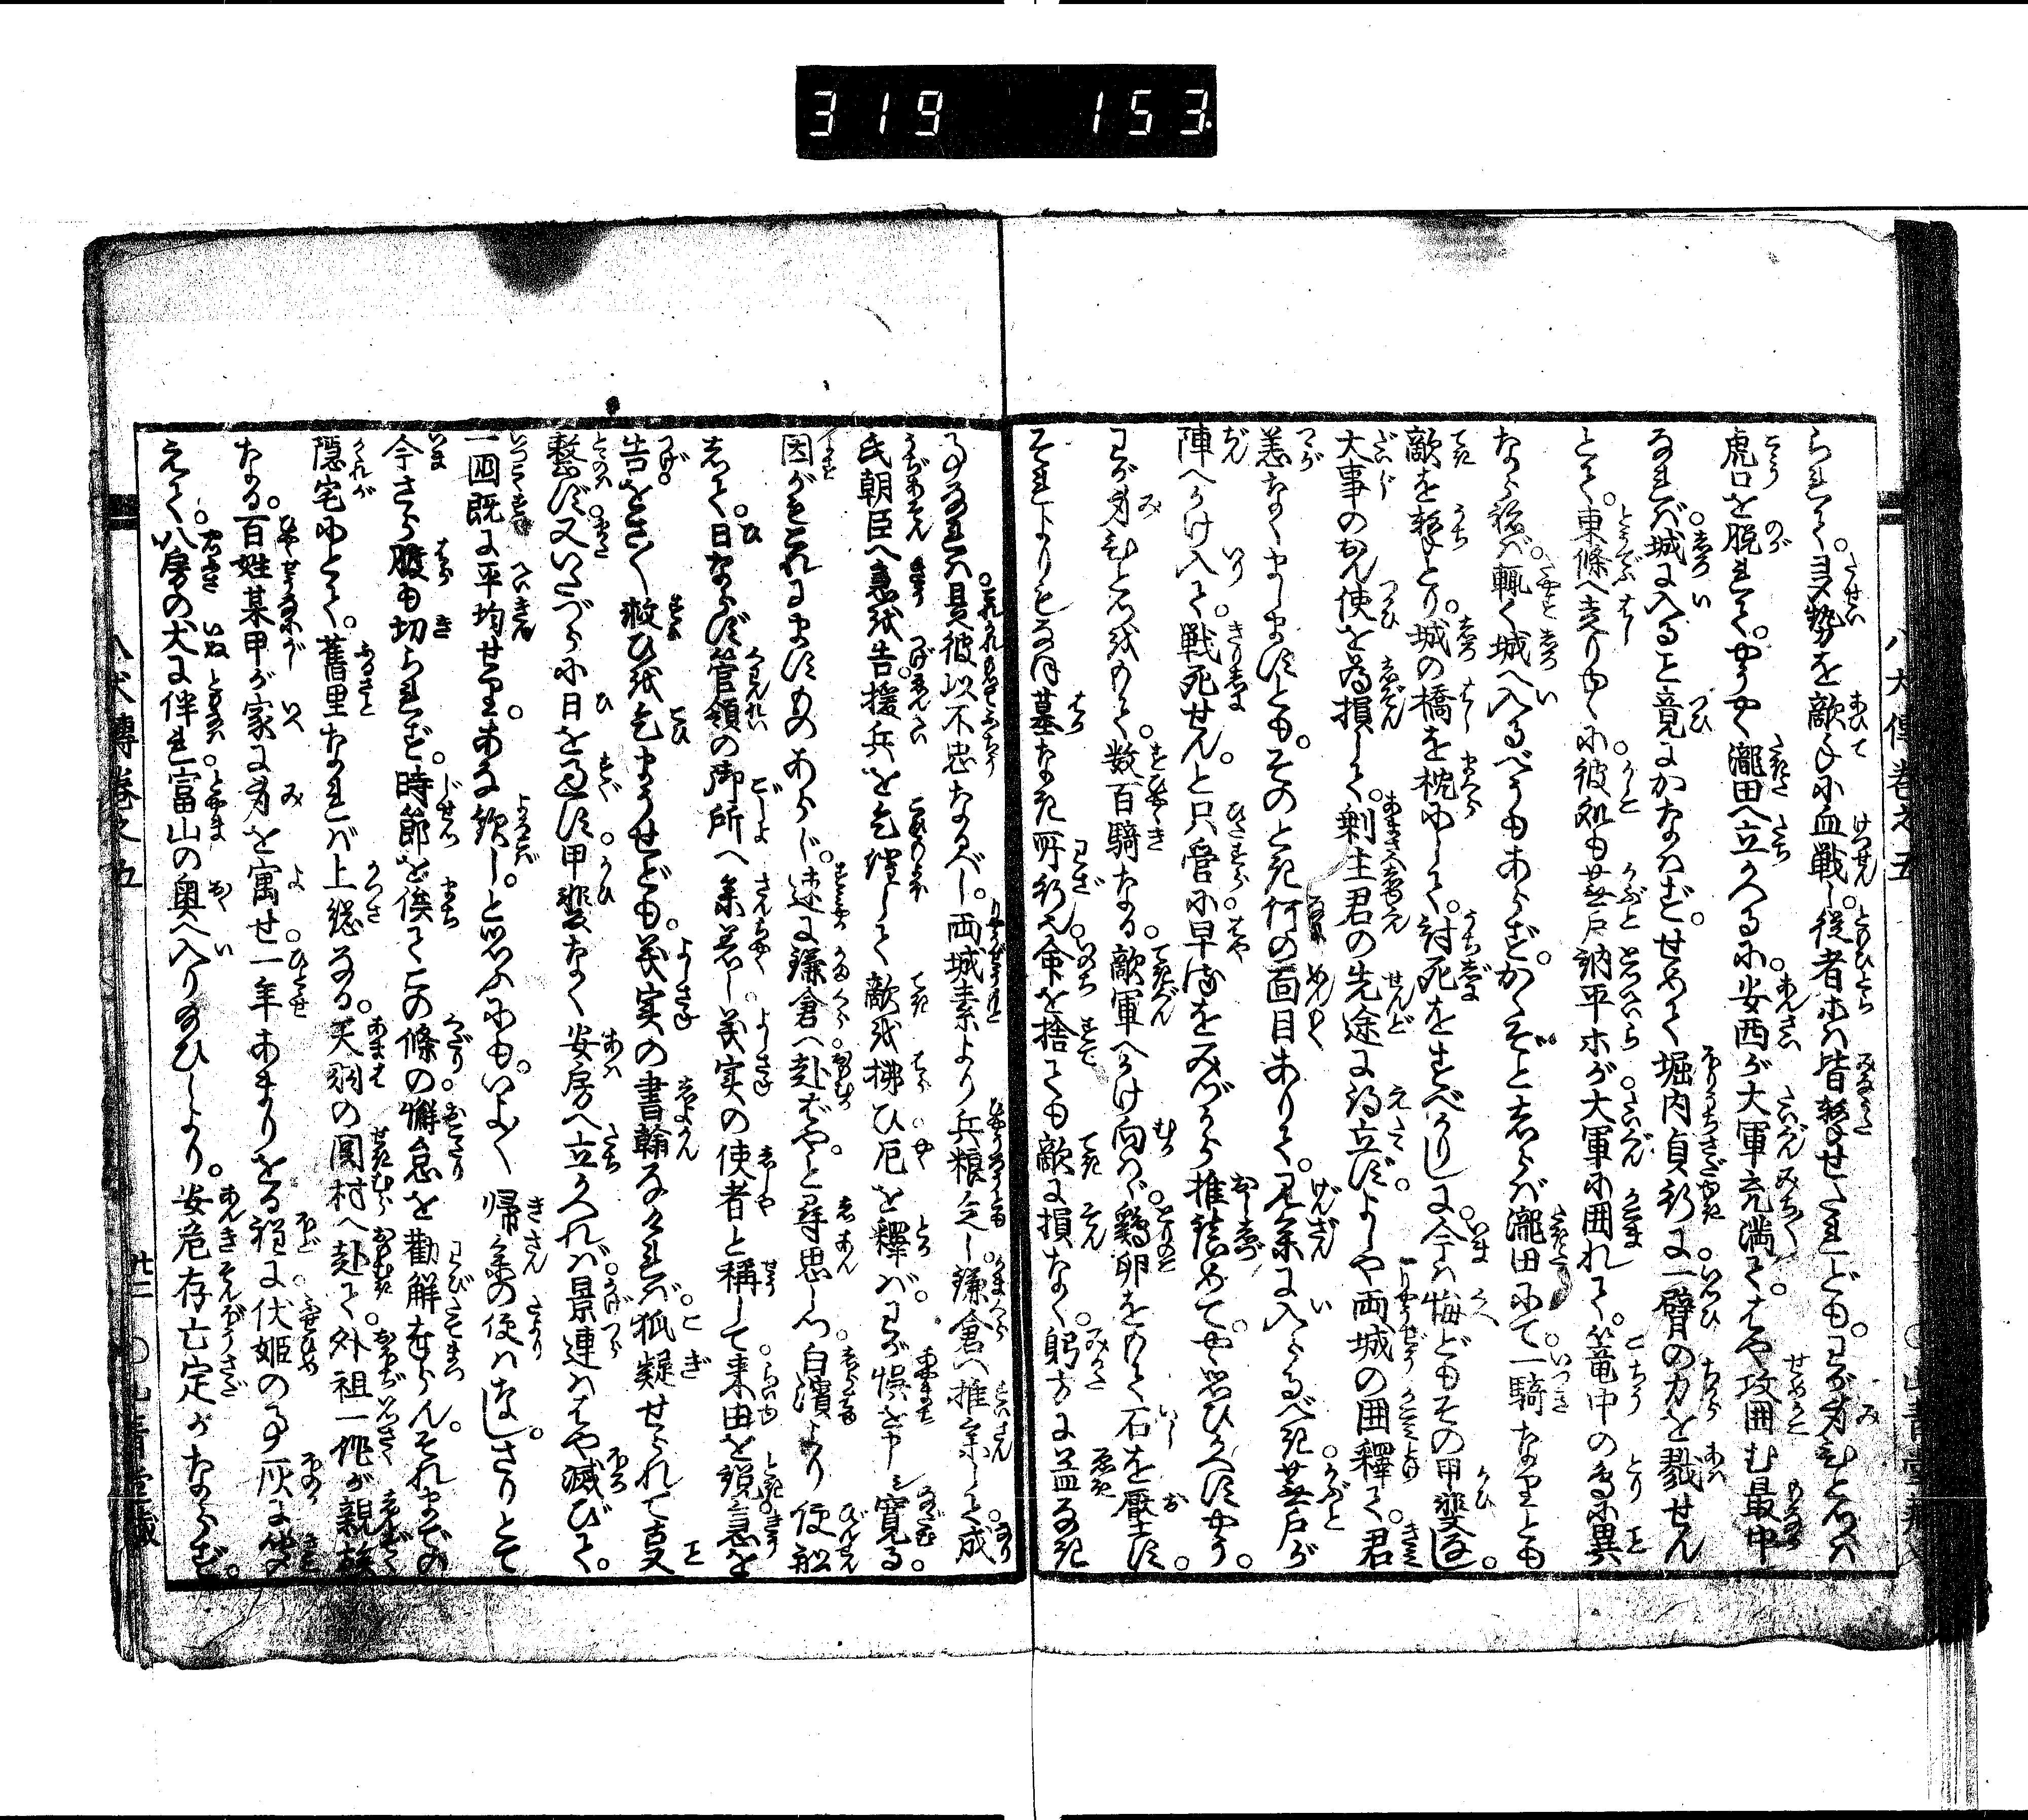 319 153
八犬傳巻之五
られて。多勢を敵手に血戦し。従者ホは皆撃せたれども。わが身ひとつは
虎口を脱れて。やうやく瀧田へ立かへるに。安西が大軍充満て。はや攻囲む最中
なれば。城に入ること竟にかなはず。せめて堀内貞行に一臂の力を戮せん
とて。東條へ走りゆくに。彼処も蕪戸訥平ホが大軍に囲れて。篭中の鳥に異
ならねば。輙く城へ入るべうもあらず。かくぞとしらば瀧田にて。一騎なりとも
敵を撃とり。城の橋を枕にして。討死をすべかりしに。今は悔どもその甲斐なし。
大事のおん使を為損じて。剰主君の先途に得立ず。よしや両城の囲釋て。君
恙なくましますとも。そのとき何の面目ありて。見参に入らるべき。蕪戸が
陣へかけ入て。戦死せん。と只管に早るをみづから推禁めて。やや思ひかへすやう。
わが身ひとつをもて。数百騎なる。敵軍へかけ向はゞ。鶏卵をもて石を壓すに。
それよりもなほ墓なき所行。命を捨ても敵に損なく。躬方に益なき
事なれば。是彼以不忠なるべし。両城素より兵粮乏し。鎌倉へ推参して。成
氏朝臣へ急を告。援兵を乞得して敵を拂ひ厄を釋ば。わが悞を申シ寛る。
因がこれにますものあらじ。迹に鎌倉へ赴ばや。と尋思しつ。白濱より便舩
して。日ならず管領の御所へ参着し。義実の使者と稱して来由を説。急を
告をさ〳〵救ひを乞まうせども。義実の書翰なければ。狐疑せられて事
整はず。又いたづらに日を過す甲斐なく安房へ立かへれば。景連ははや滅びて。
一国既に平均せり。あな歓し。と思ふにも。いよ〳〵帰参の便はなし。さりとて
今さら腹も切られず。時節を俟てこの條の懈怠を勸解まうさん。それまでの
隠宅にとて。舊里なれば上総なる。天羽の関村へ赴て。外祖一作が親族
なる。百姓某甲が家に身を寓せ一年あまりをる程に伏姫の事灰に聞
えて。八房の犬に伴れ富山の奥へ入り給ひしより。安危存亡定かならず。
八犬傳巻之五
廿二